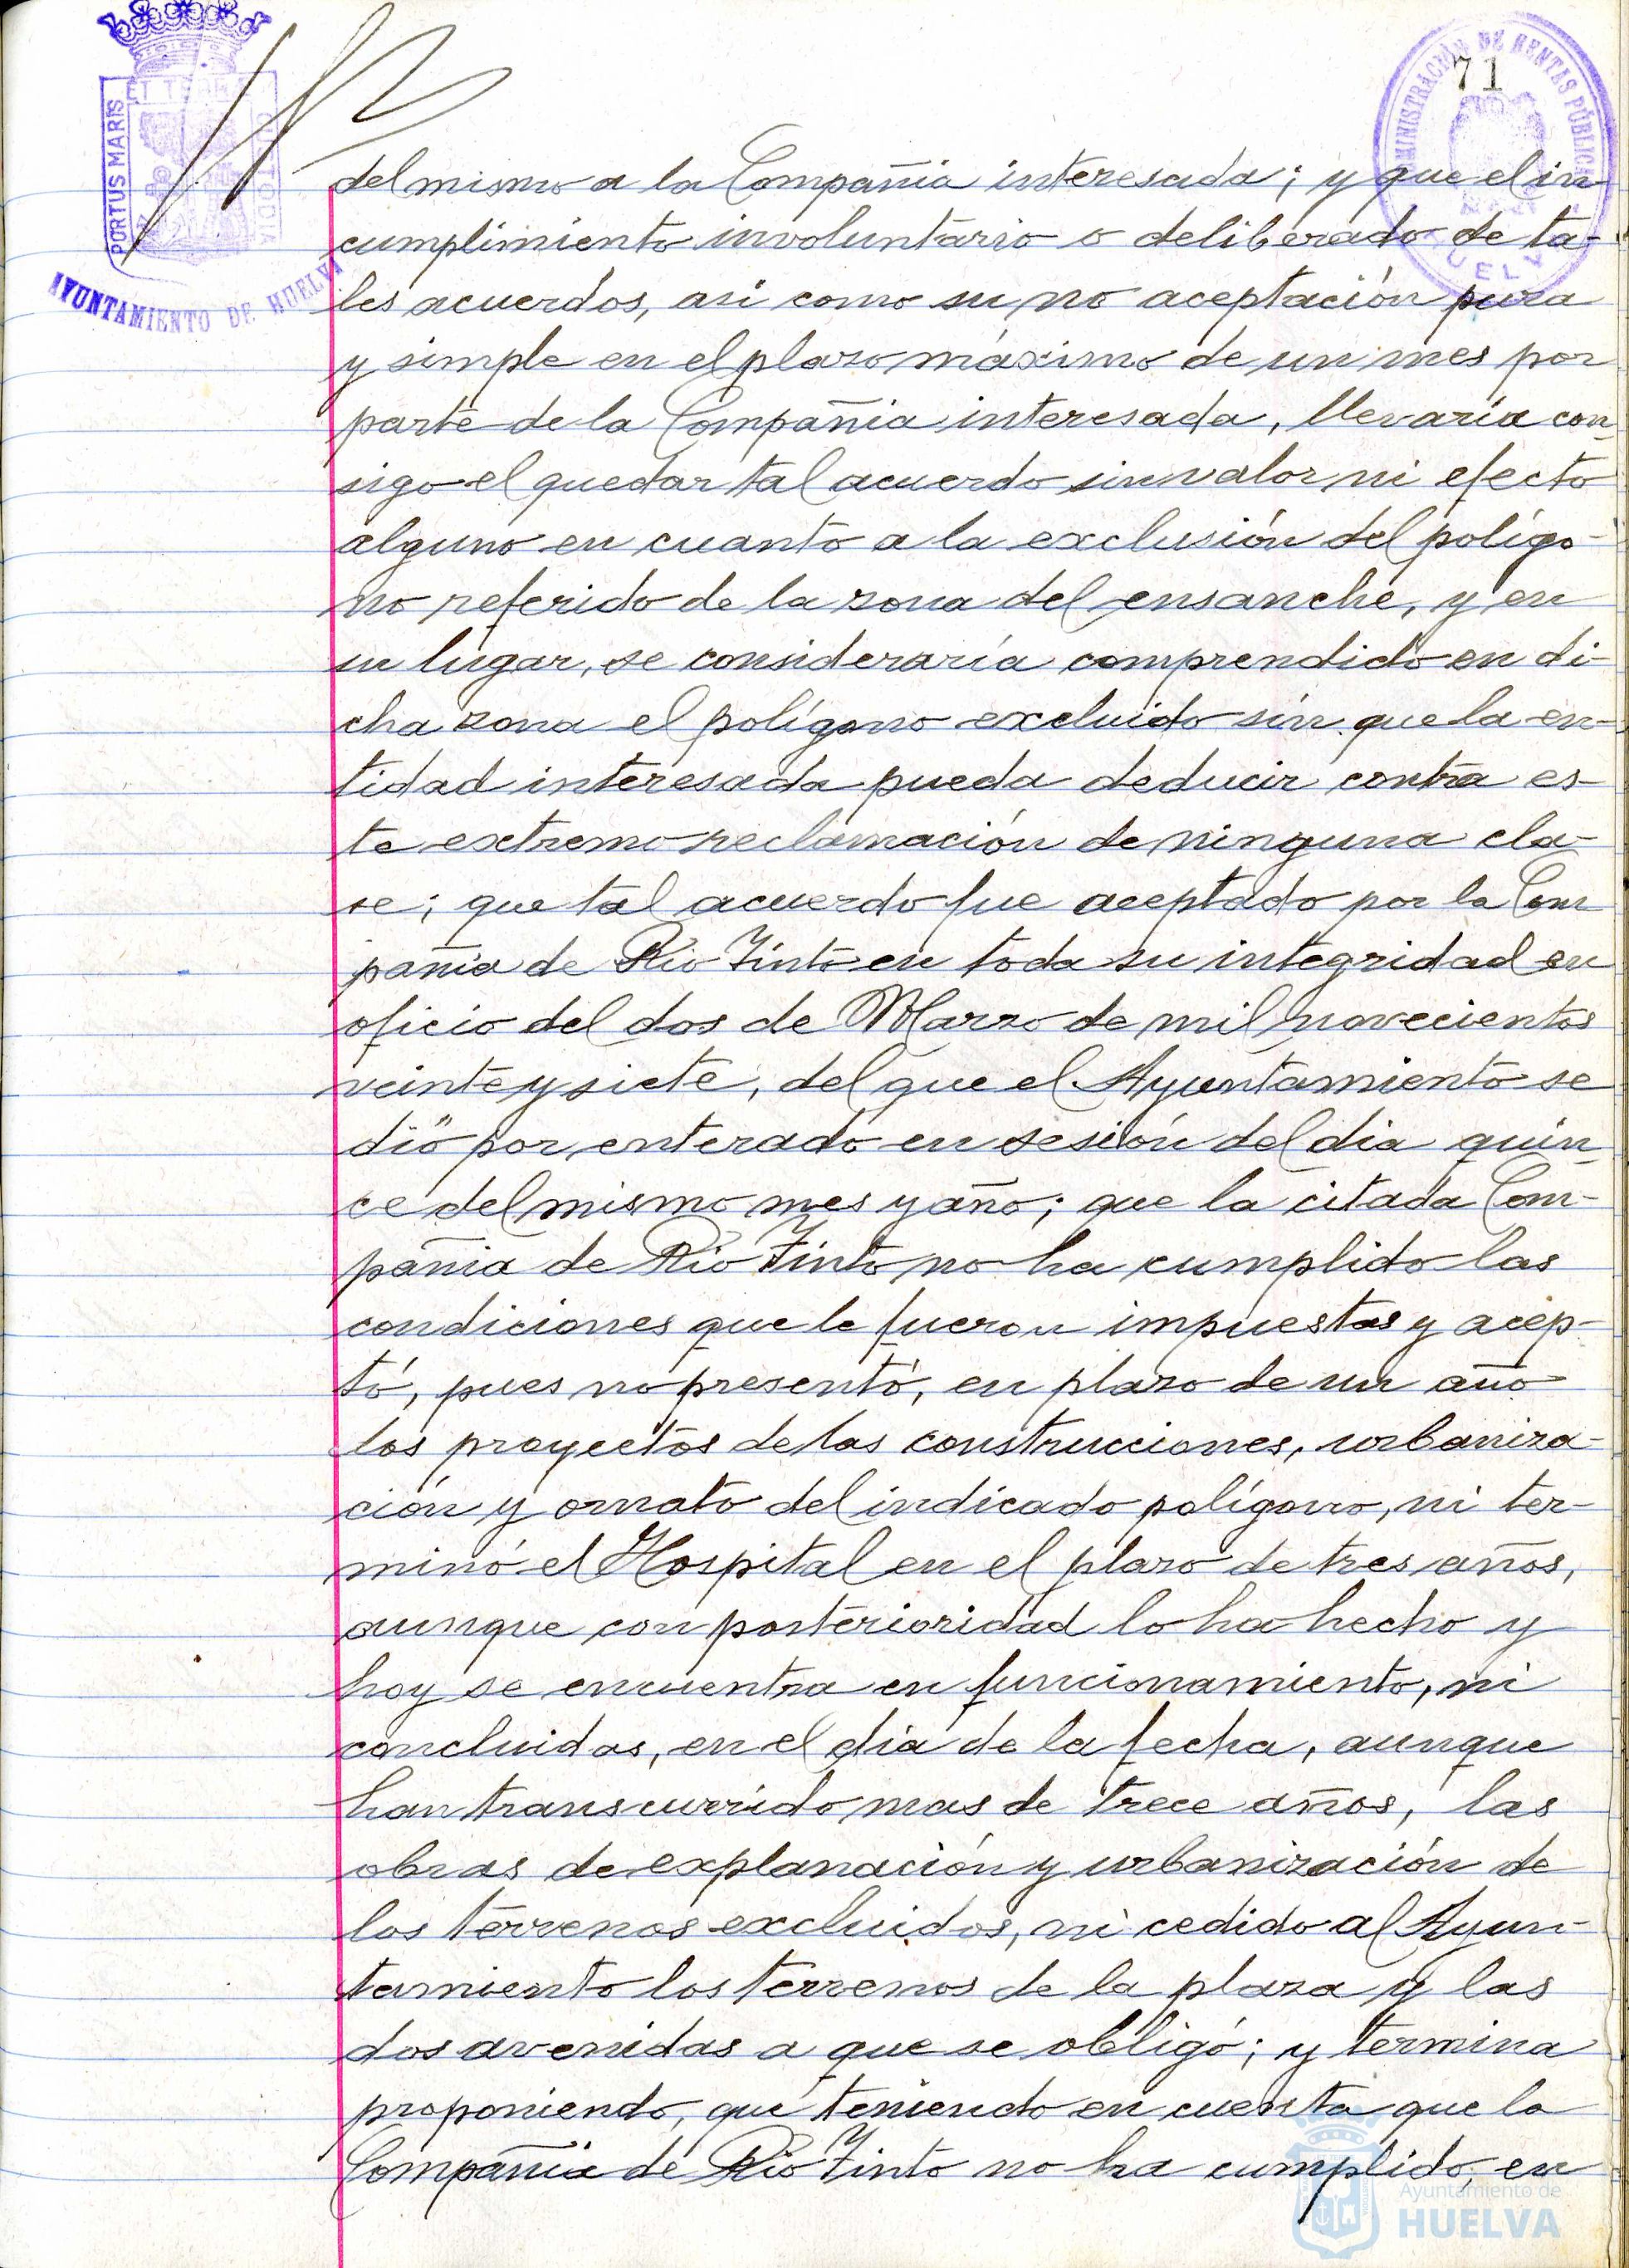 71
PORTUS MARIS
ET TERRAE
CUSTODIA
AYUNTAMIENTO DE HUELVA
ADMINISTRACIÓN DE RENTAS PÚBLICAS
HUELVA
del mismo a la Compañia interesada; y que el in
cumplimiento involuntario o deliberado de ta-
les acuerdos, asi como su no aceptación pura
y simple en el plazo máximo de un mes por
parte de la Compañia interesada, llevaría con_
sigo el quedar tal acuerdo sin valor ni efecto
alguno en cuanto a la exclusión del polígo-
no referido de la zona del ensanche, y en
su lugar, se consideraría comprendido en di-
cha zona el polígono excluido sin que la en-
tidad interesada pueda deducir contra es-
te extremo reclamación de ninguna cla-
se; que tal acuerdo fue aceptado por la Com
pañia de Rio Tinto en toda su integridad en
oficio del dos de Marzo de mil novecientos
veinte y siete, del que el Ayuntamiento se
dió por enterado en sesión del dia quin_
ce del mismo mes y año; que la citada Com-
pañia de Rio Tinto no ha cumplido las
condiciones que le fueron impuestas y acep-
tó, pues no presentó, en plazo de un año
los proyectos de las construcciones, urbaniza-
ción y ornato del indicado polígono, ni ter-
minó el Hospital en el plazo de tres años,
aunque con posterioridad lo ha hecho y
hoy se encuentra en funcionamiento, ni
concluidas, en el dia de la fecha, aunque
han transcurrido mas de trece años, las
obras de explanación y urbanización de
los terrenos excluidos, ni cedido al Ayun-
tamiento los terrenos de la plaza y las
dos avenidas a que se obligó; y termina
proponiendo, que teniendo en cuenta que la
Compañia de Rio Tinto no ha cumplido, en
Ayuntamiento de
HUELVA